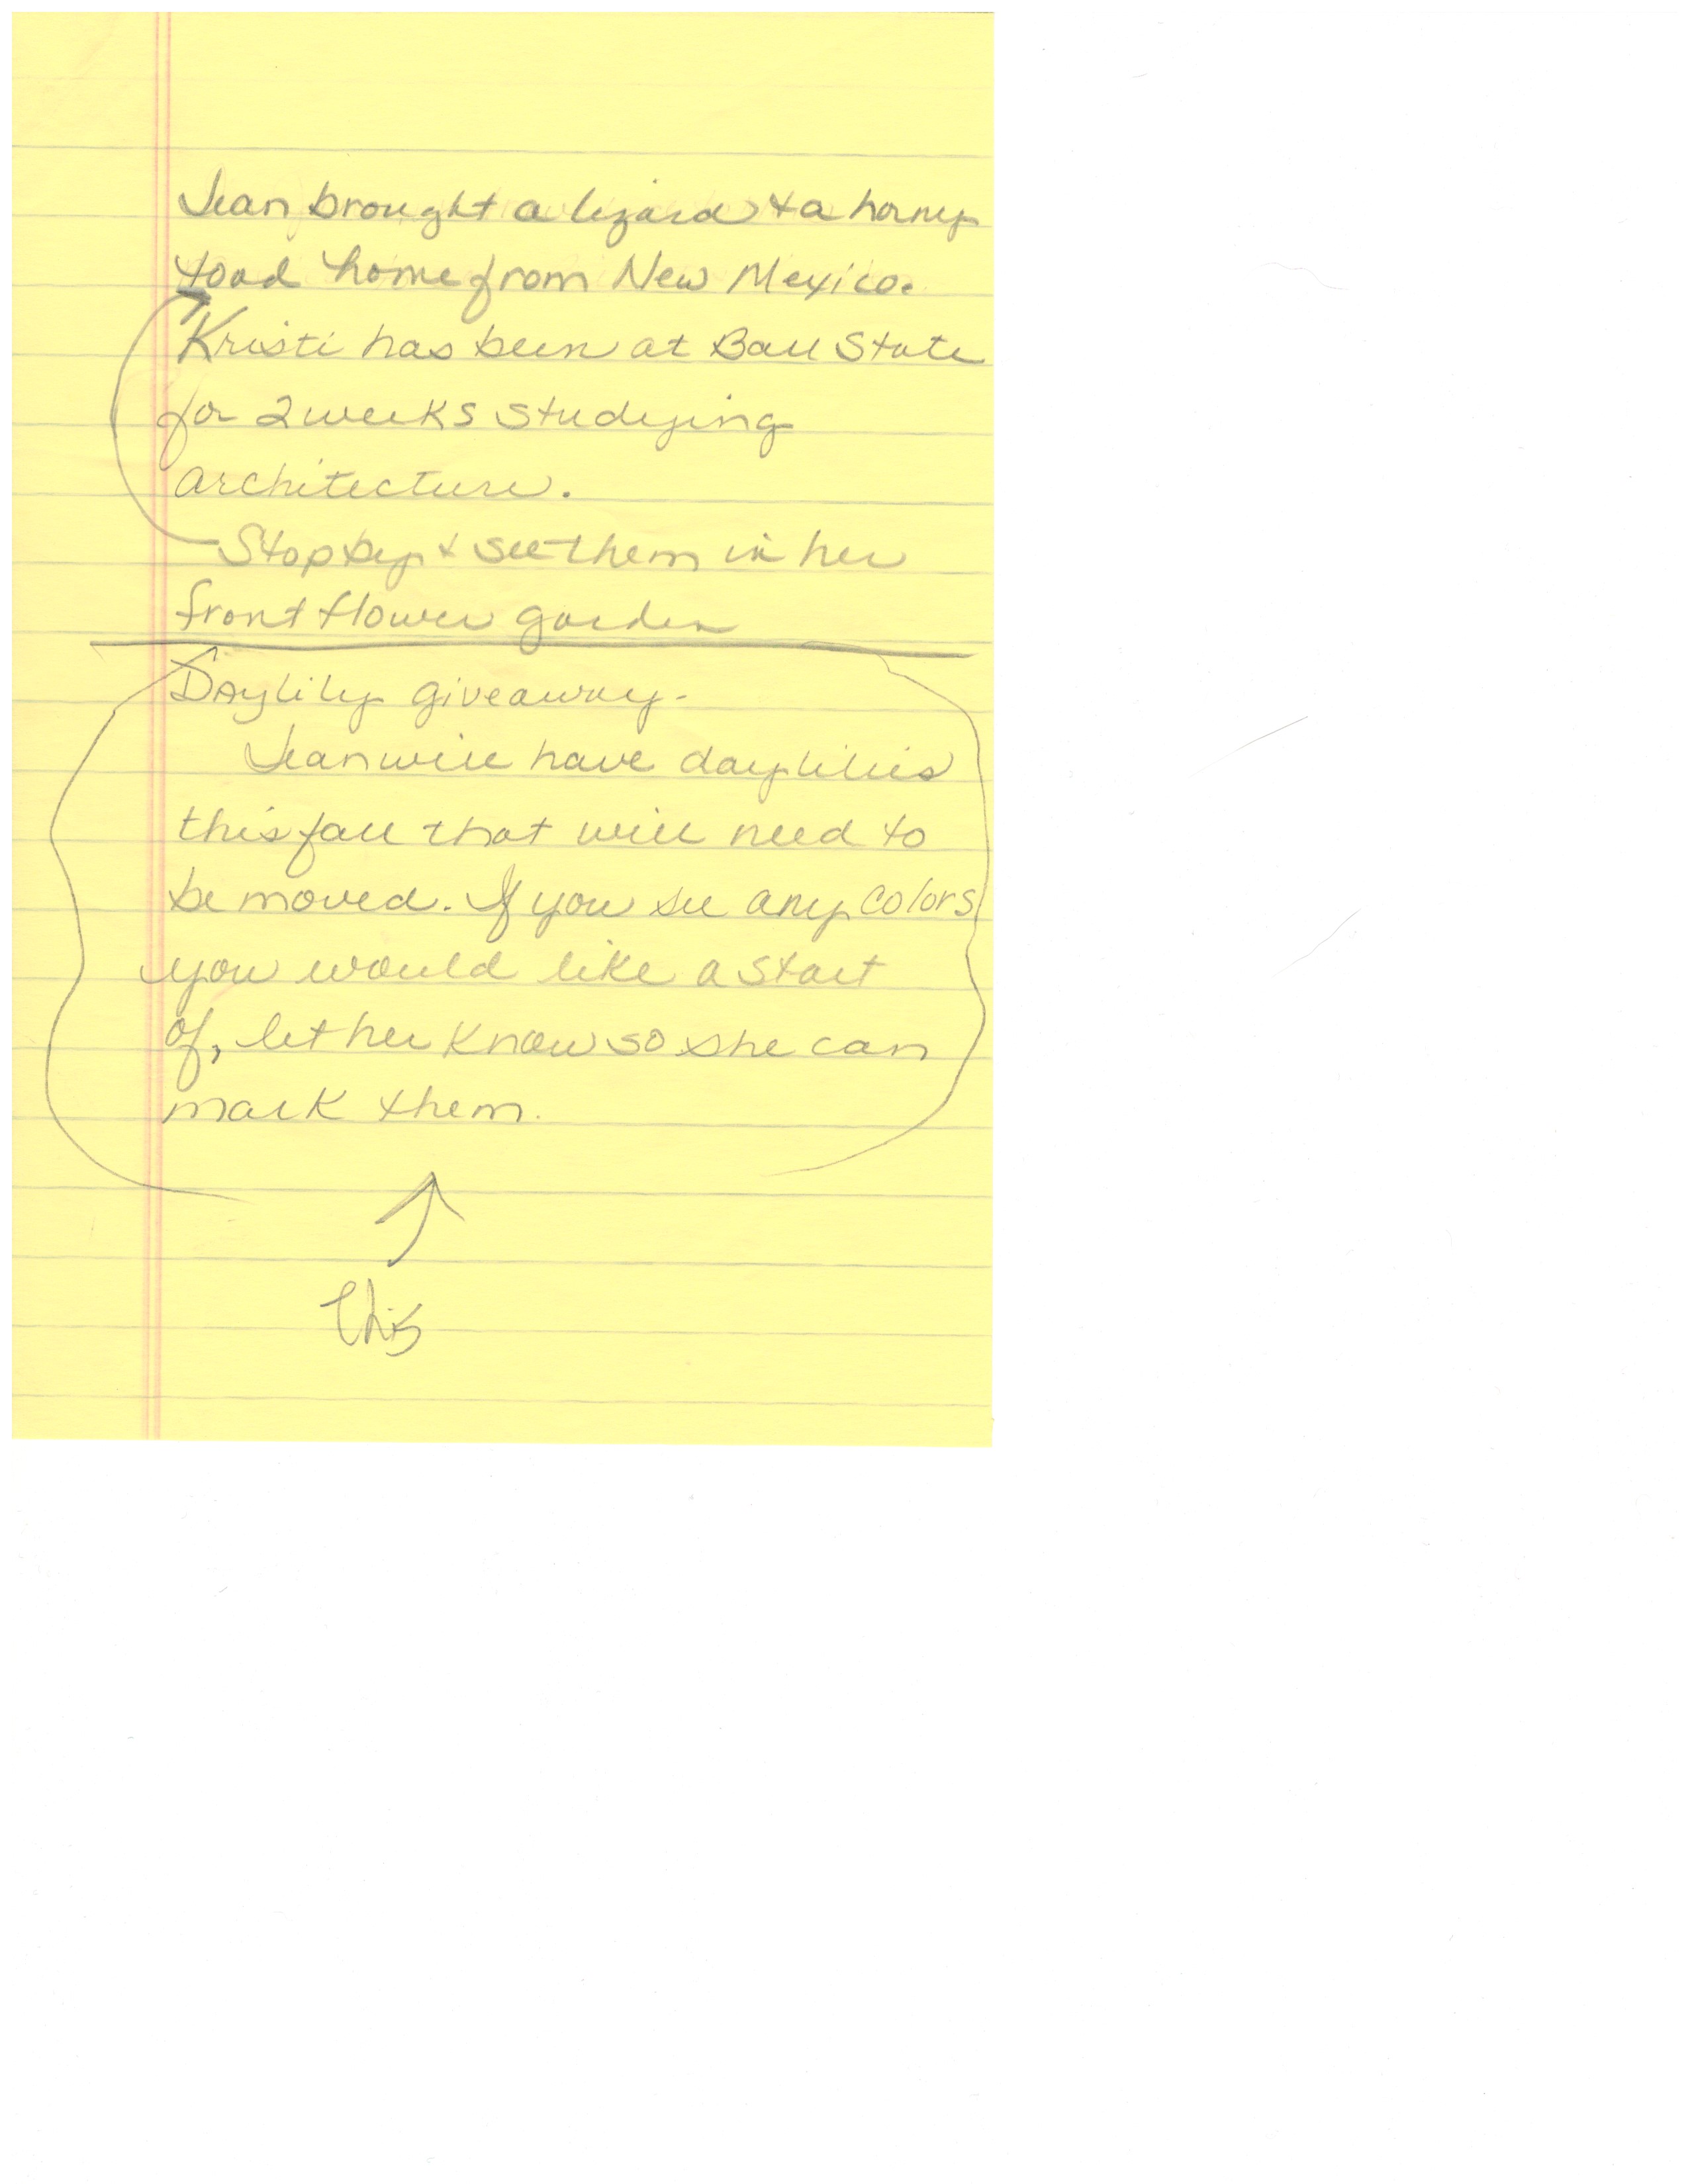 Jean brought a lizard & a horny
toad home from New Mexico.
Kristi has been at Ball State
for 2 weeks studying
architecture.
Stop by & see them in her
front flower garden
Daylily giveaway-
Jean will have daylilies
this fall that will need to
be moved. If you see any colors
you would like a start
of, let her know so she can
mark them.
this